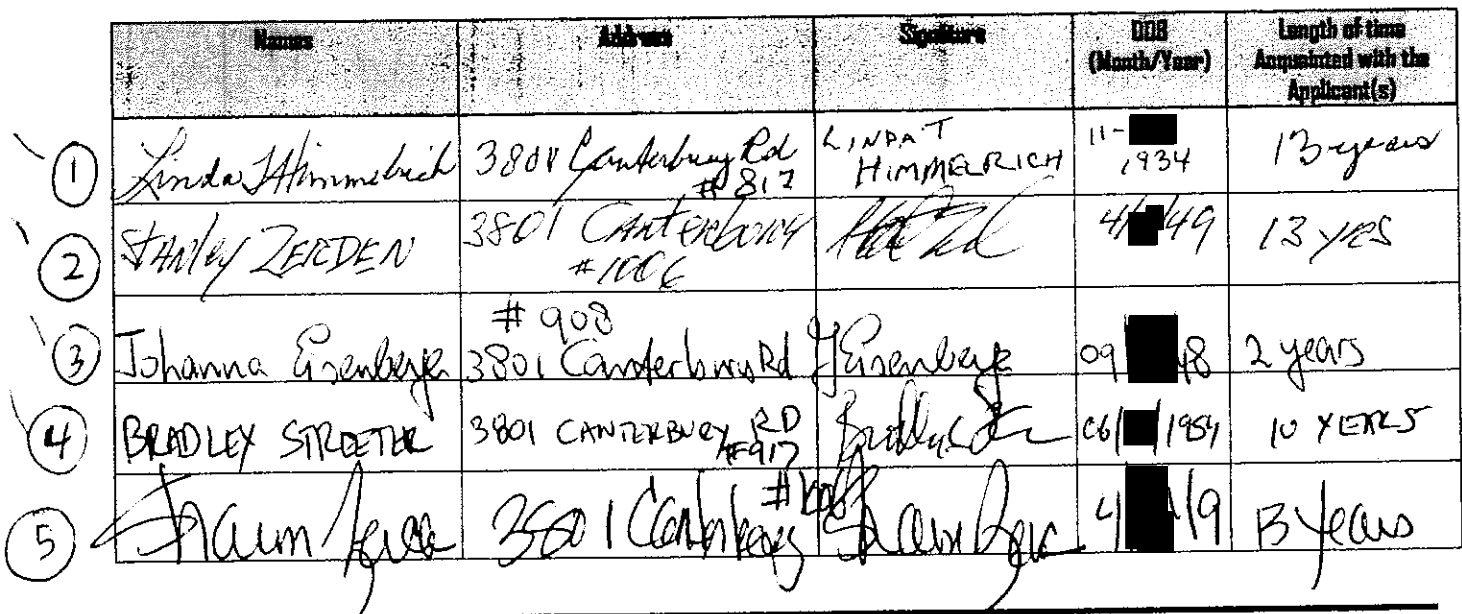 Names Address Signature DOB (Month/Year) Length of time Acquainted with the Applicant(s)
1 Linda T Himmelrich 3801 Canterbury Rd #817 LINDA T HIMMELRICH 11- 1934 13 years
2 Stanley ZERDEN 3801 Canterbury #1006 4/ /49 13 yrs
#908
3 Johanna 3801 Canterbury Rd 09 48 2 years
4 BRADLEY STREETER 3801 CANTERBURY RD #917 06/ /1984 10 YEARS
5 3801 Canterbury 4 /9 13 years